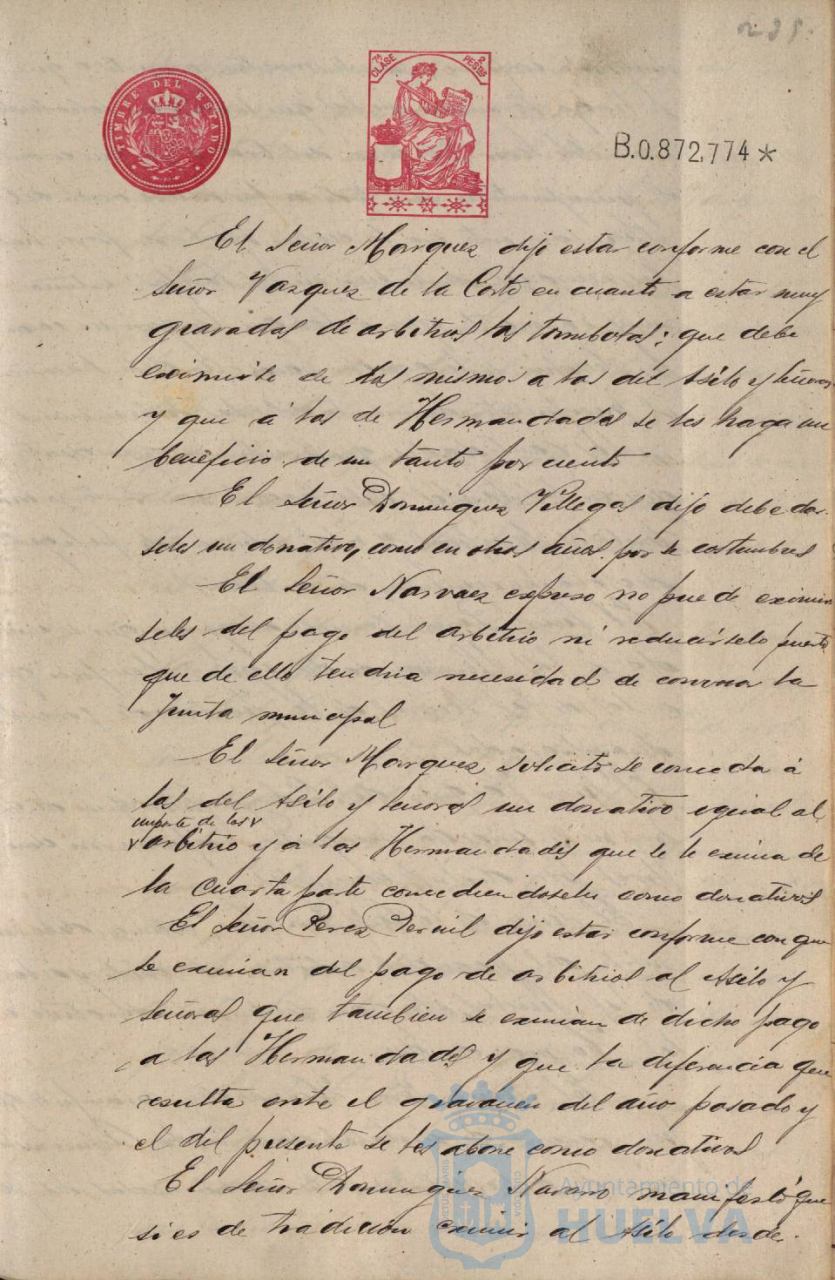 235.
TIMBRE DEL ESTADO
7ª CLASE 2 PESTAS
B.0.872,774 *
El Señor Márquez dijo estar conforme con el
Señor Vazquez de la Corte en cuanto a estar muy
gravadas de arbitrios las tombolas; que debe
eximirse de los mismos a las del Asilo y Señoras
y que á las de Hermandades se les haga un
beneficio de un tanto por ciento
El Señor Dominguez Villegas dijo debe dar-
seles un donativo, como en otros años, por
El Señor Narvaez expuso no puede eximir
seles del pago del arbitrio ni reducirselo puesto
que de ello tendria necesidad de conocer la
Junta municipal
El Señor Marquez solicitó se conceda á
las del Asilo y Señoras un donativo igual al
importe de los
arbitrio y á las Hermandades que se le exima de
la cuarta parte concediendoseles como donativos
El Señor Perez Pernil dijo estar conforme con que
se eximan del pago de arbitrios al Asilo y
Señoras que tambien se eximan de dicho pago
a las Hermandades y que la diferencia que
resulta entre el gravamen del año pasado y
el del presente se les abone como donativos
El Señor Dominguez Navarro manifestó que
si es de tradicion eximir al Asilo desde
Ayuntamiento de
HUELVA